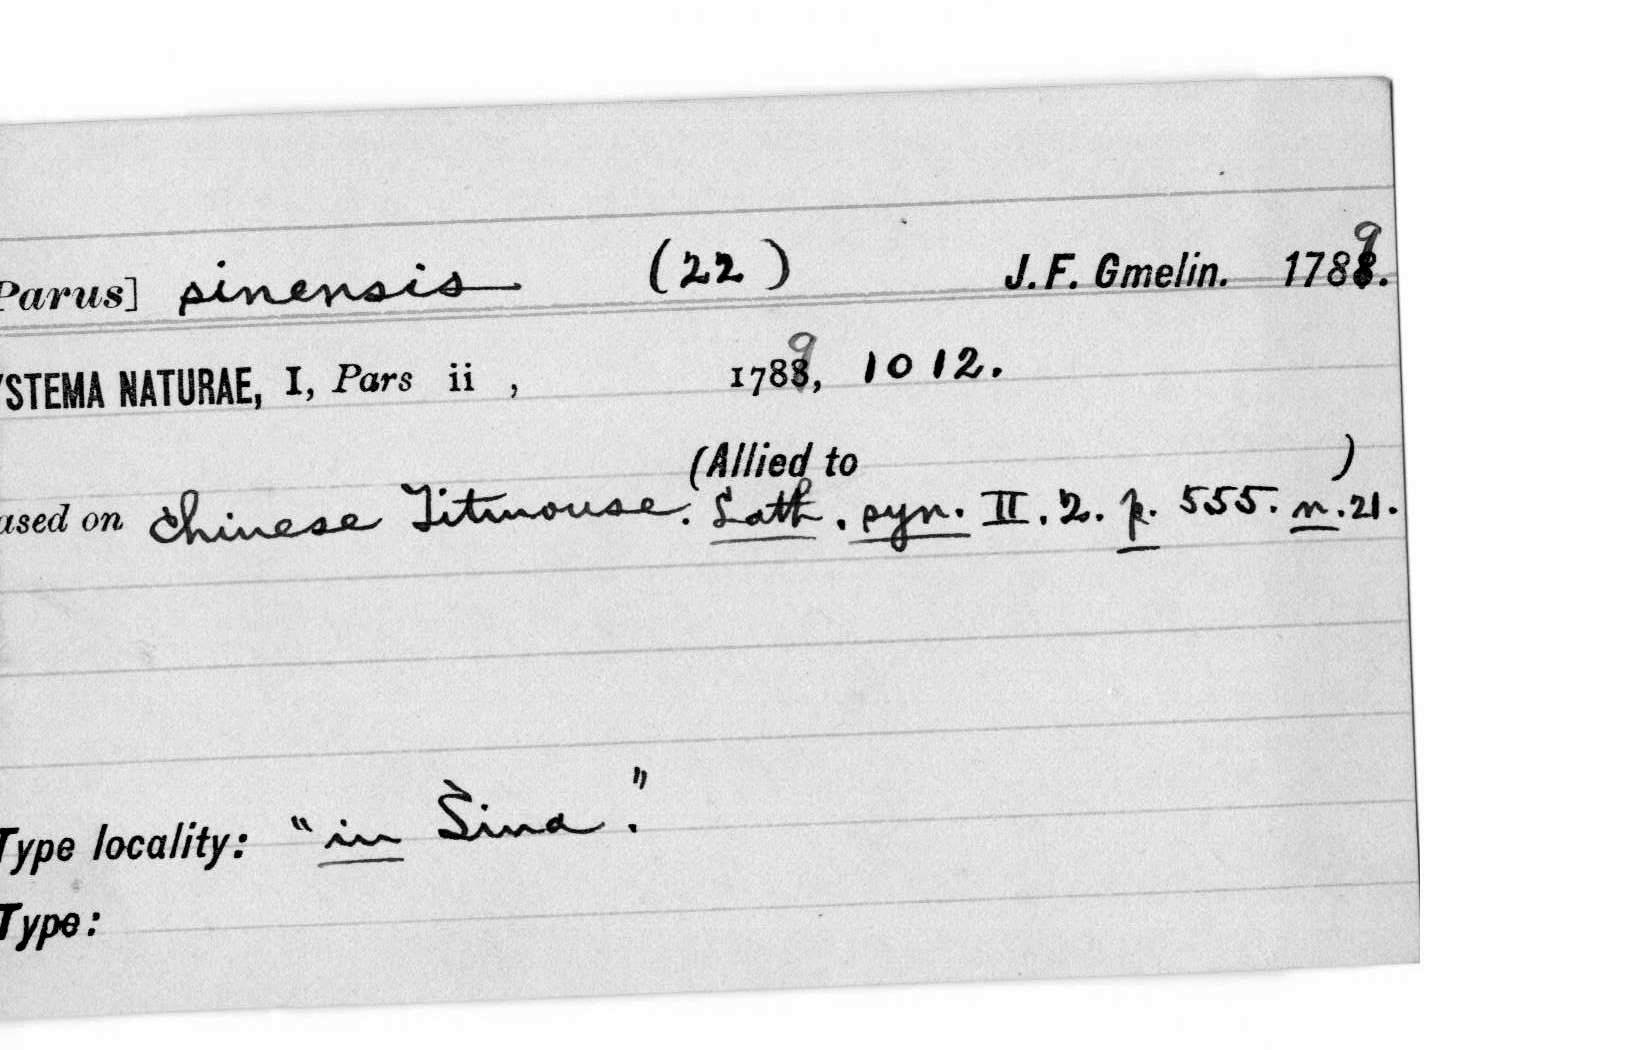 Parus] sinensis (22) J. F. Gmelin. 1789.
YSTEMA NATURAE, I, Pars ii , 1789, 1012.
(Allied to )
ased on Chinese Titmouse. Lath. syn. II. 2. p. 555. n. 21.
Type locality: "in Šina."
Type: